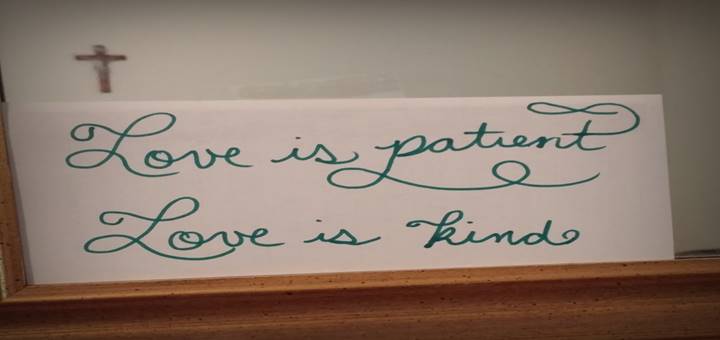 Love is patient
Love is kind